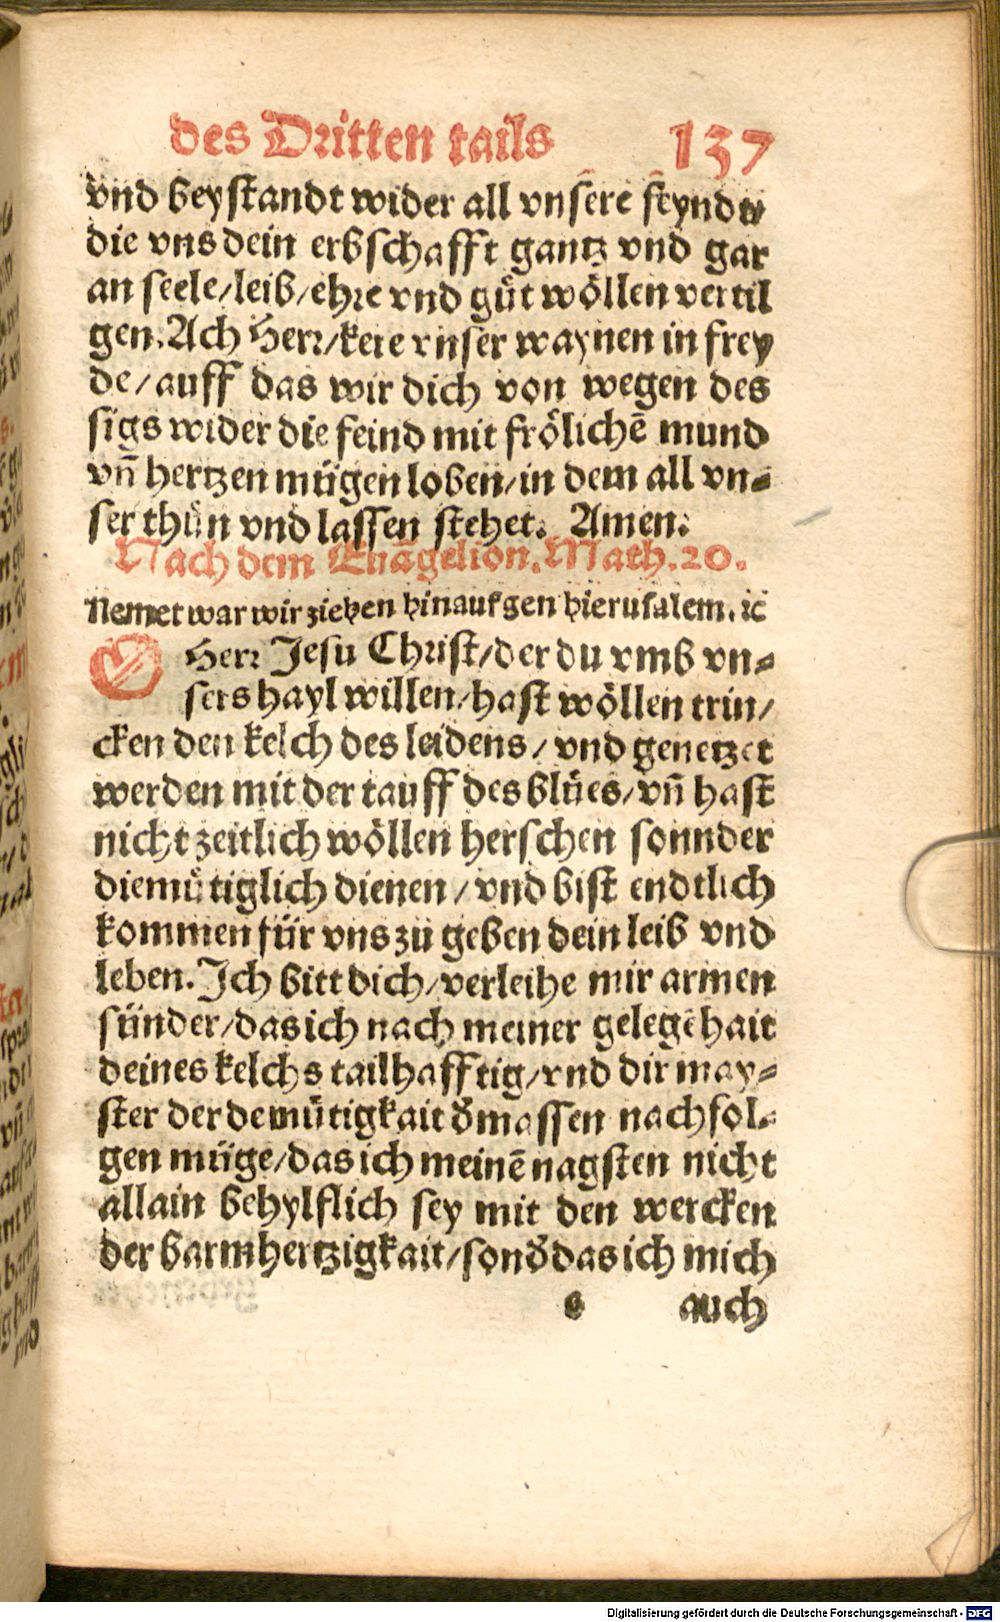 des Dritten tails 137
vnd beystandt wider all vnsere feynde
die vns dein erbschafft gantz vnd gar
an seele/leib/ehre vnd gůt wöllen vertil
gen. Ach Herr/kere vnser waynen in frey
de/auff das wir dich von wegen des
sigs wider die feind mit frölichē mund
vn̄ hertzen mügen loben/in dem all vn⸗
ser thůn vnd lassen stehet. Amen.
Nach dem Euāgelion. Math. 20.
Nemet war wir ziehen hinauf gen hierusalem. ꝛc
O Herr Jesu Christ/der du vmb vn⸗
sers hayl willen/hast wöllen trin/
cken den kelch des leidens/vnd genetzet
werden mit der tauff des blůes/vn̄ hast
nicht zeitlich wöllen herschen sonnder
diemůtiglich dienen/vnd bist endtlich
kommen für vns zů geben dein leib vnd
leben. Ich bitt dich/verleihe mir armen
sünder/das ich nach meiner gelegēhait
deines kelchs tailhafftig/vnd dir may⸗
ster der demůtigkait d̄massen nachfol⸗
gen müge/das ich meinē nagsten nicht
allain behylflich sey mit den wercken
der barmhertzigkait/sond̄ das ich mich
s auch
Digitalisierung gefördert durch die Deutsche Forschungsgemeinschaft - DFG